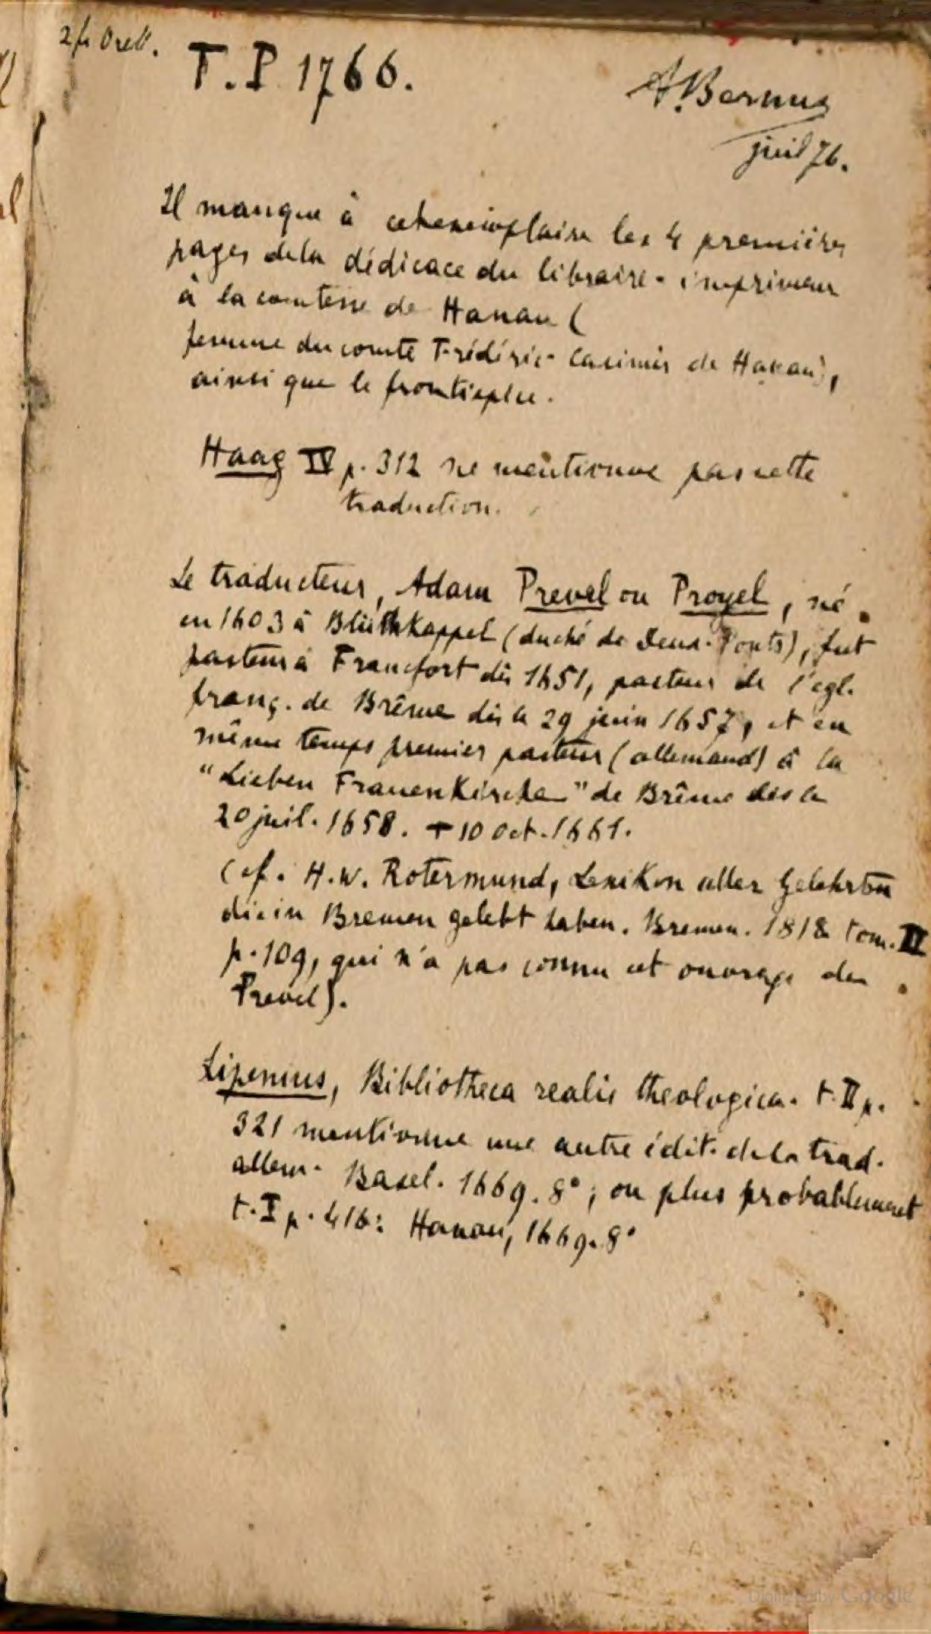 2 fr Orell.
T.P 1766.
A. Bernus
juil 76.
Il manque à cet exemplaire les 4 premières
pages de la dédicace du libraire-imprimeur
à la comtesse de Hanau (
femme du comte Frédéric Casimir de Hanau),
ainsi que le frontispice.
Haag IV p. 312 ne mentionne pas cette
traduction.
Le traducteur, Adam Prevel ou Proyel, né
en 1603 à Bliethkappel (duché de Deux-Ponts), fut
pasteur à Francfort dès 1651, pasteur de l'egl.
franç. de Brême dès le 29 juin 1657, et en
même temps premier pasteur (allemand) à la
"Lieben Frauenkirche" de Brême dès le
20 juil. 1658. † 10 Oct. 1661.
(cf. H.W. Rotermund, Lexikon aller Gelehrten
die in Bremen gelebt haben. Bremen. 1818 tom. II
p. 109, qui n'a pas connu cet ouvrage de
Prevel).
Lipenius, Bibliotheca realis theologica. t. II p.
321 mentionne une autre édit. de la trad.
allem. Basel. 1669. 8°; ou plus probablement
t. I p. 416: Hanau, 1669. 8°
Google